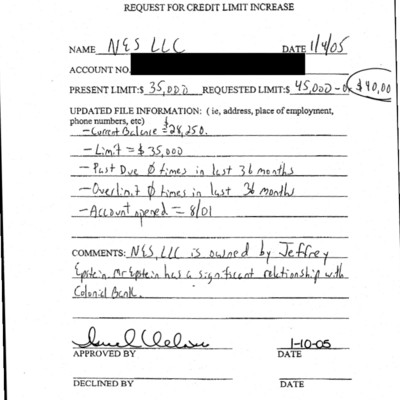 REQUEST FOR CREDIT LIMIT INCREASE
NAME NES LLC DATE 1/4/05
ACCOUNT NO.
PRESENT LIMIT:$ 35,000 REQUESTED LIMIT:$ 45,000 - or $40,00
UPDATED FILE INFORMATION: ( ie, address, place of employment,
phone numbers, etc)
- Current Balance = $28,250.
- Limit = $ 35,000
- Past Due 0 times in last 36 months
- Overlimit 0 times in last 36 months
- Account opened = 8/01
COMMENTS: NES, LLC is owned by Jeffrey
Epstein. Mr Epstein has a significant relationship with
Colonial Bank.
1-10-05
APPROVED BY DATE
DECLINED BY DATE